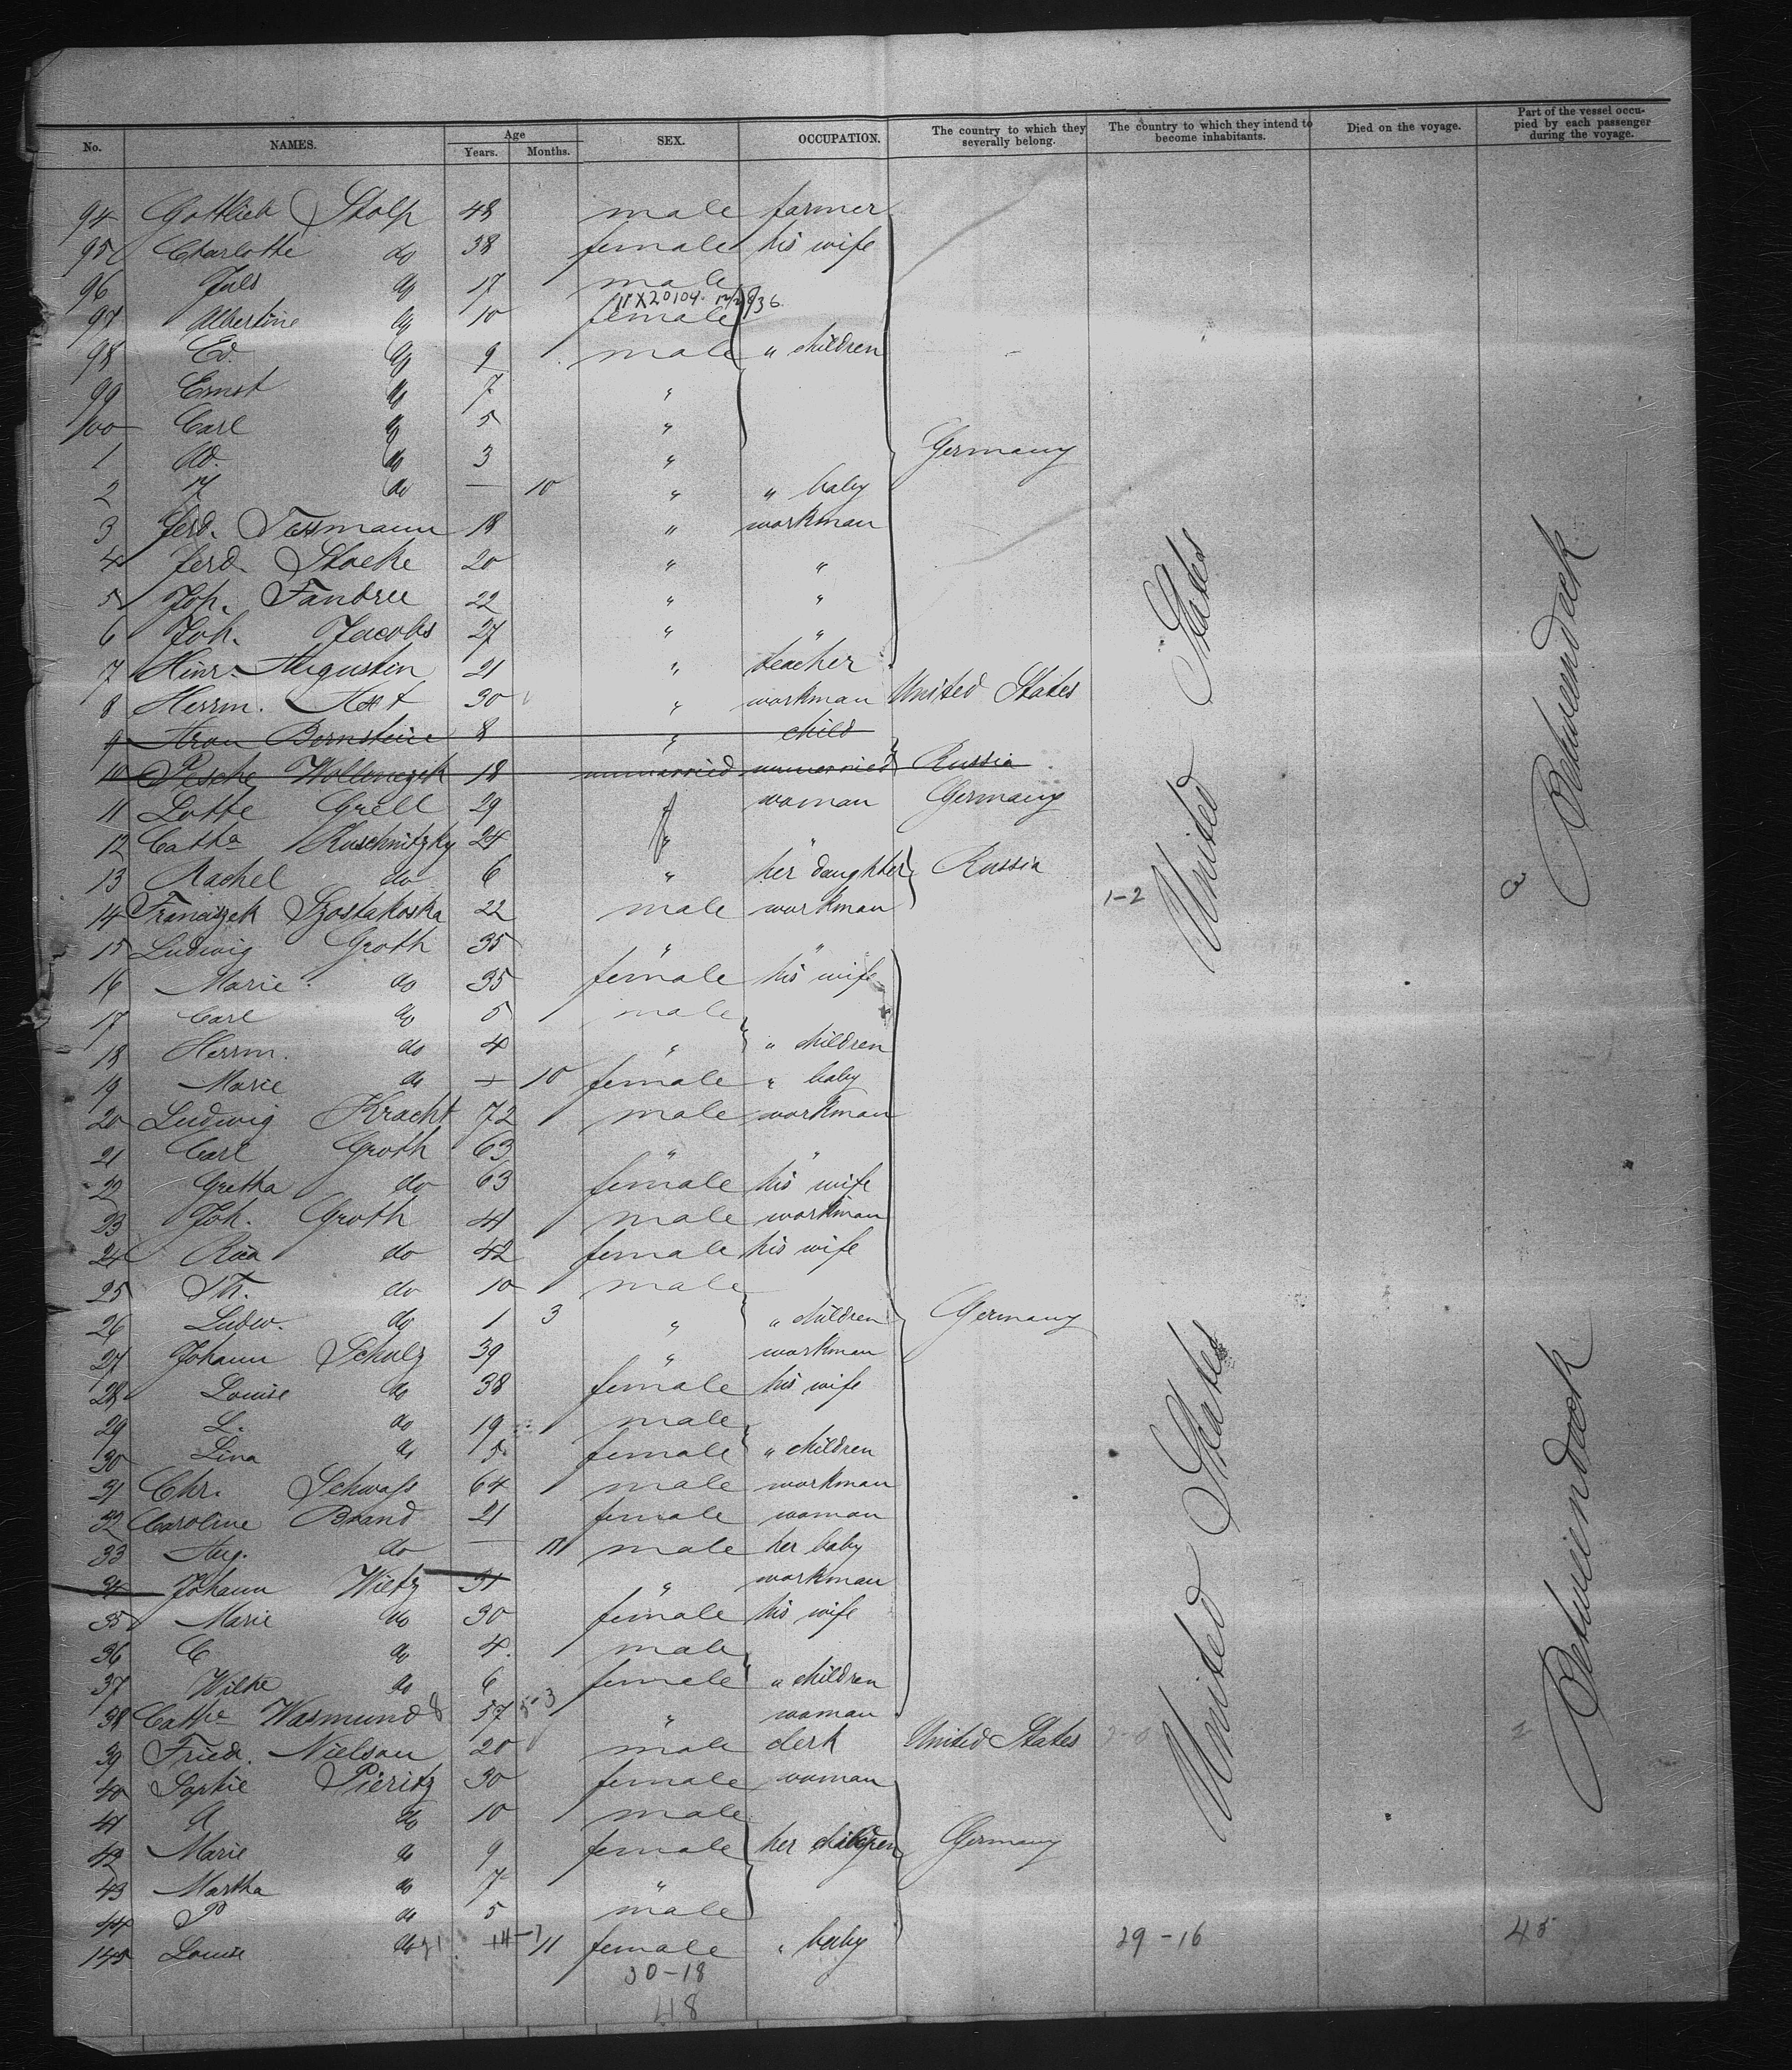 No. NAMES. Age Years. Months. SEX. OCCUPATION. The country to which they severally belong. The country to which they intend to become inhabitants. Died on the voyage. Part of the vessel occupied by each passenger during the voyage.
94 Gottlieb Stolp 48 male farmer
95 Charlotte do 38 female his wife
96 Juls do 17 male
11X20104
97 Albertine do 10 female
98 Ed. do 9 male " children
99 Ernst do 7 "
100 Carl do 5 "
1 Ad. do 3 " Germany
2 do — 10 " " baby
3 Ferd. Tessmann 18 " workman
4 Ferd. Stocke 20 " "
5 Joh. Fandree 22 " "
6 Joh. Jacobs 27 " "
7 Hinr. Augustin 21 " teacher
8 Herrm. 30 " workman United States
9 Aron Bernstein 8 " child
10 Pesche 18 unmarried unmarried Russia
11 Lotte Grell 29 " woman Germany
12 Catha Kuschnitzky 24 " "
13 Rachel do 6 " her daughter Russia
14 Franciszek Szostakoska 22 male workman 1-2
15 Ludwig Groth 35 " "
16 Marie do 35 female his wife
17 Carl do 5 male
18 Herrm. do 4 " " children
19 Marie do — 10 female " baby
20 Ludwig Kracht 72 male workman
21 Carl Groth 63 " "
22 Gretha do 63 female his wife
23 Joh. Groth 41 male workman
24 do 42 female his wife
25 Th. do 10 male
26 Ludw. do 1 3 " " children Germany
27 Johann Schulz 39 " workman
28 Louise do 38 female his wife
29 L. do 19 male
30 Lina do 5 female " children
31 Chr. Schwass 64 male workman
32 Caroline Brand 21 female woman
33 Aug. do — male her baby
34 Johann Wiltz 31 " workman
35 Marie do 30 female his wife
36 C do 4 male
37 Wilhe do 6 female " children
38 Cathe Wasmund 57 5-3 " woman
39 Fried. Nielsen 20 male clerk United States
40 Sophie Pieritz 30 female woman
41 A do 10 male
42 Marie do 9 female her children Germany
43 Martha do 7 "
44 P do 5 male
145 Louise do 11 female " baby 29-16 45
30-18
48
United States
Betweendeck
United States
Betweendeck